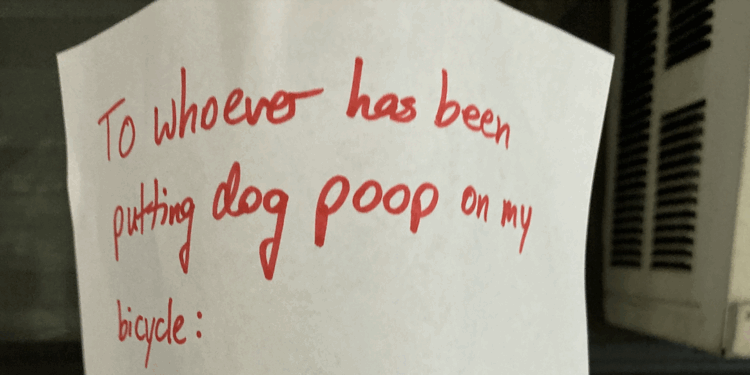 To whoever has been
putting dog poop on my
bicycle: